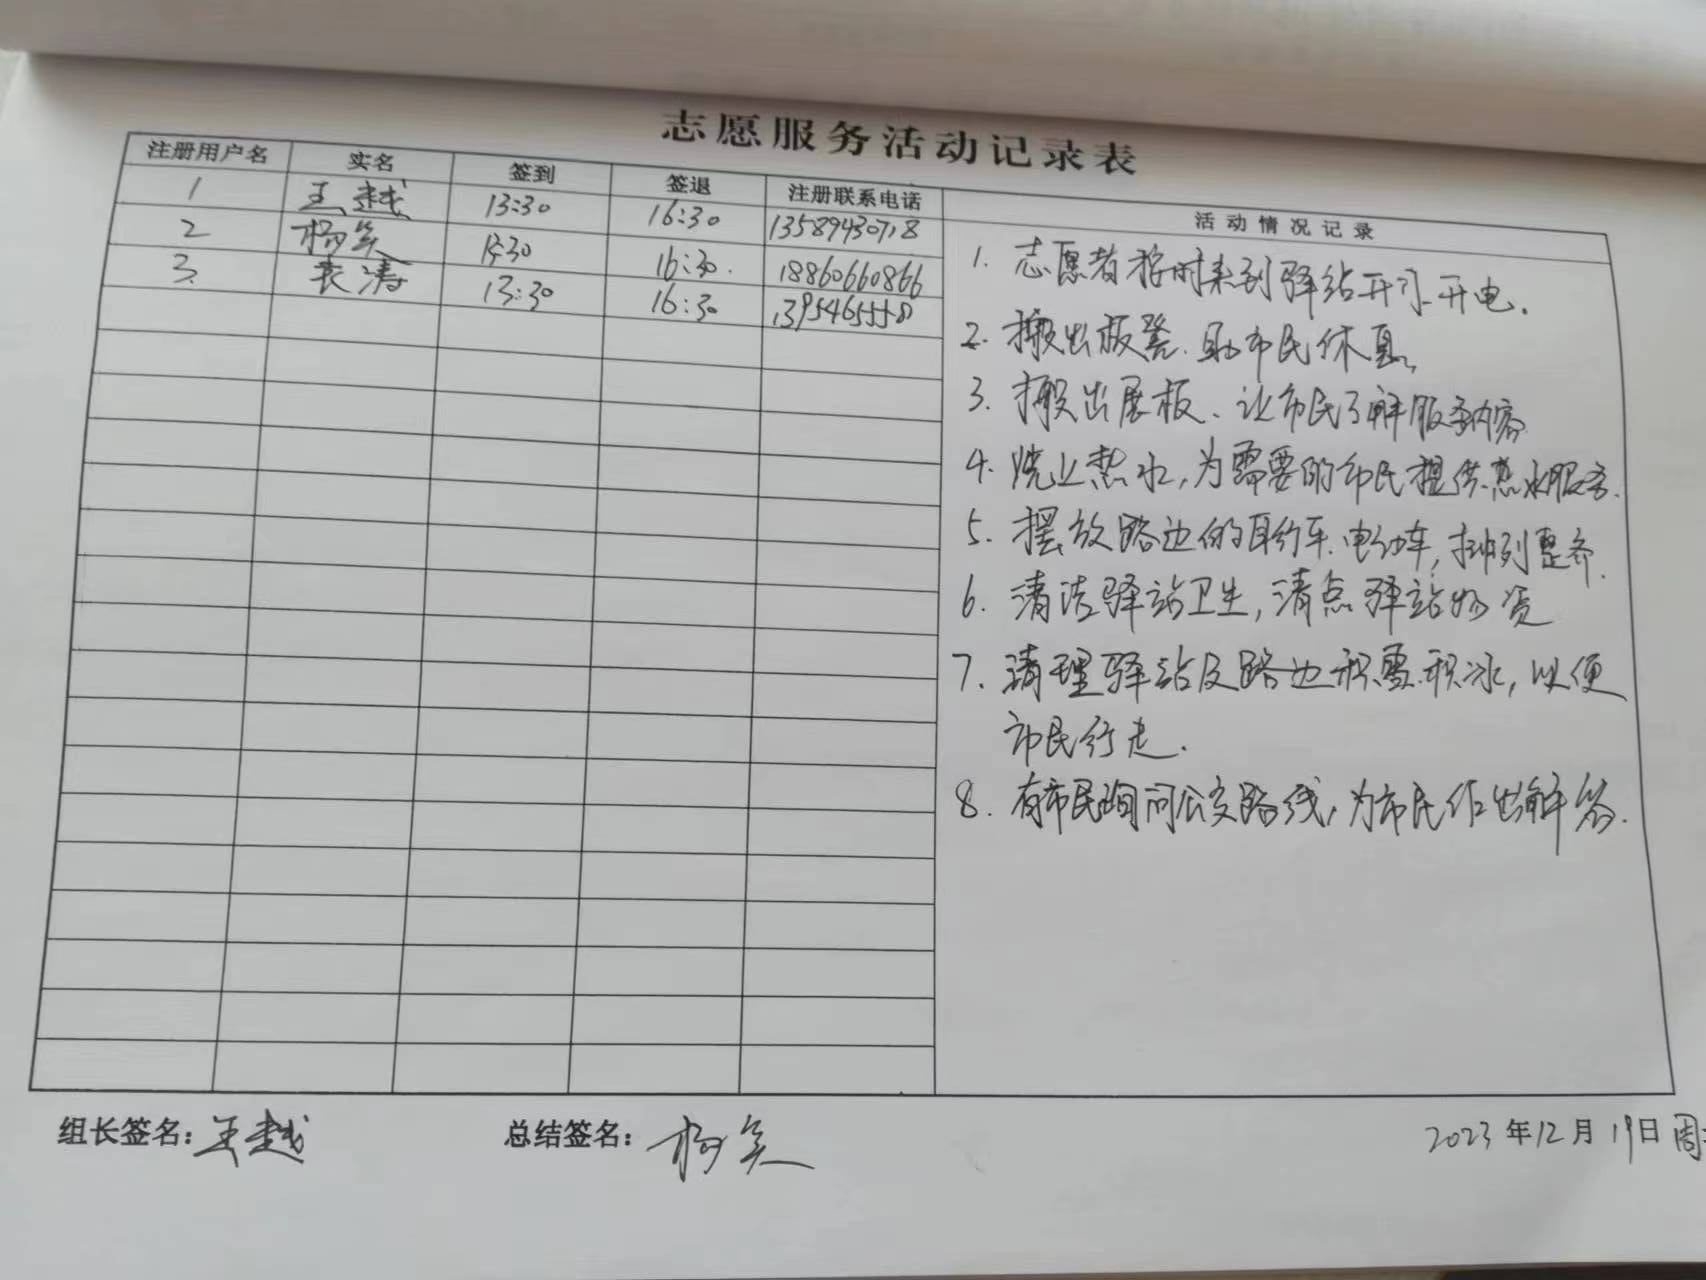 志愿服务活动记录表
注册用户名 实名 签到 签退 注册联系电话 活动情况记录
1 王越 13:30 16:30 13589430718
2 杨笑 13:30 16:30. 18860660866
3. 袁涛 13:30 16:30 13954655581
1. 志愿者按时来到驿站开门开电.
2. 搬出板凳.助市民休息.
3. 搬出展板、让市民了解服务内容
4. 烧上热水,为需要的市民提供热水服务.
5. 摆放路边的自行车.电动车,排列整齐.
6. 清洁驿站卫生,清点驿站物资
7. 清理驿站及路边积雪.积冰,以便
市民行走.
8. 有市民询问公交路线,为市民作出解答.
组长签名:王越 总结签名:杨笑 2023年12月19日 周